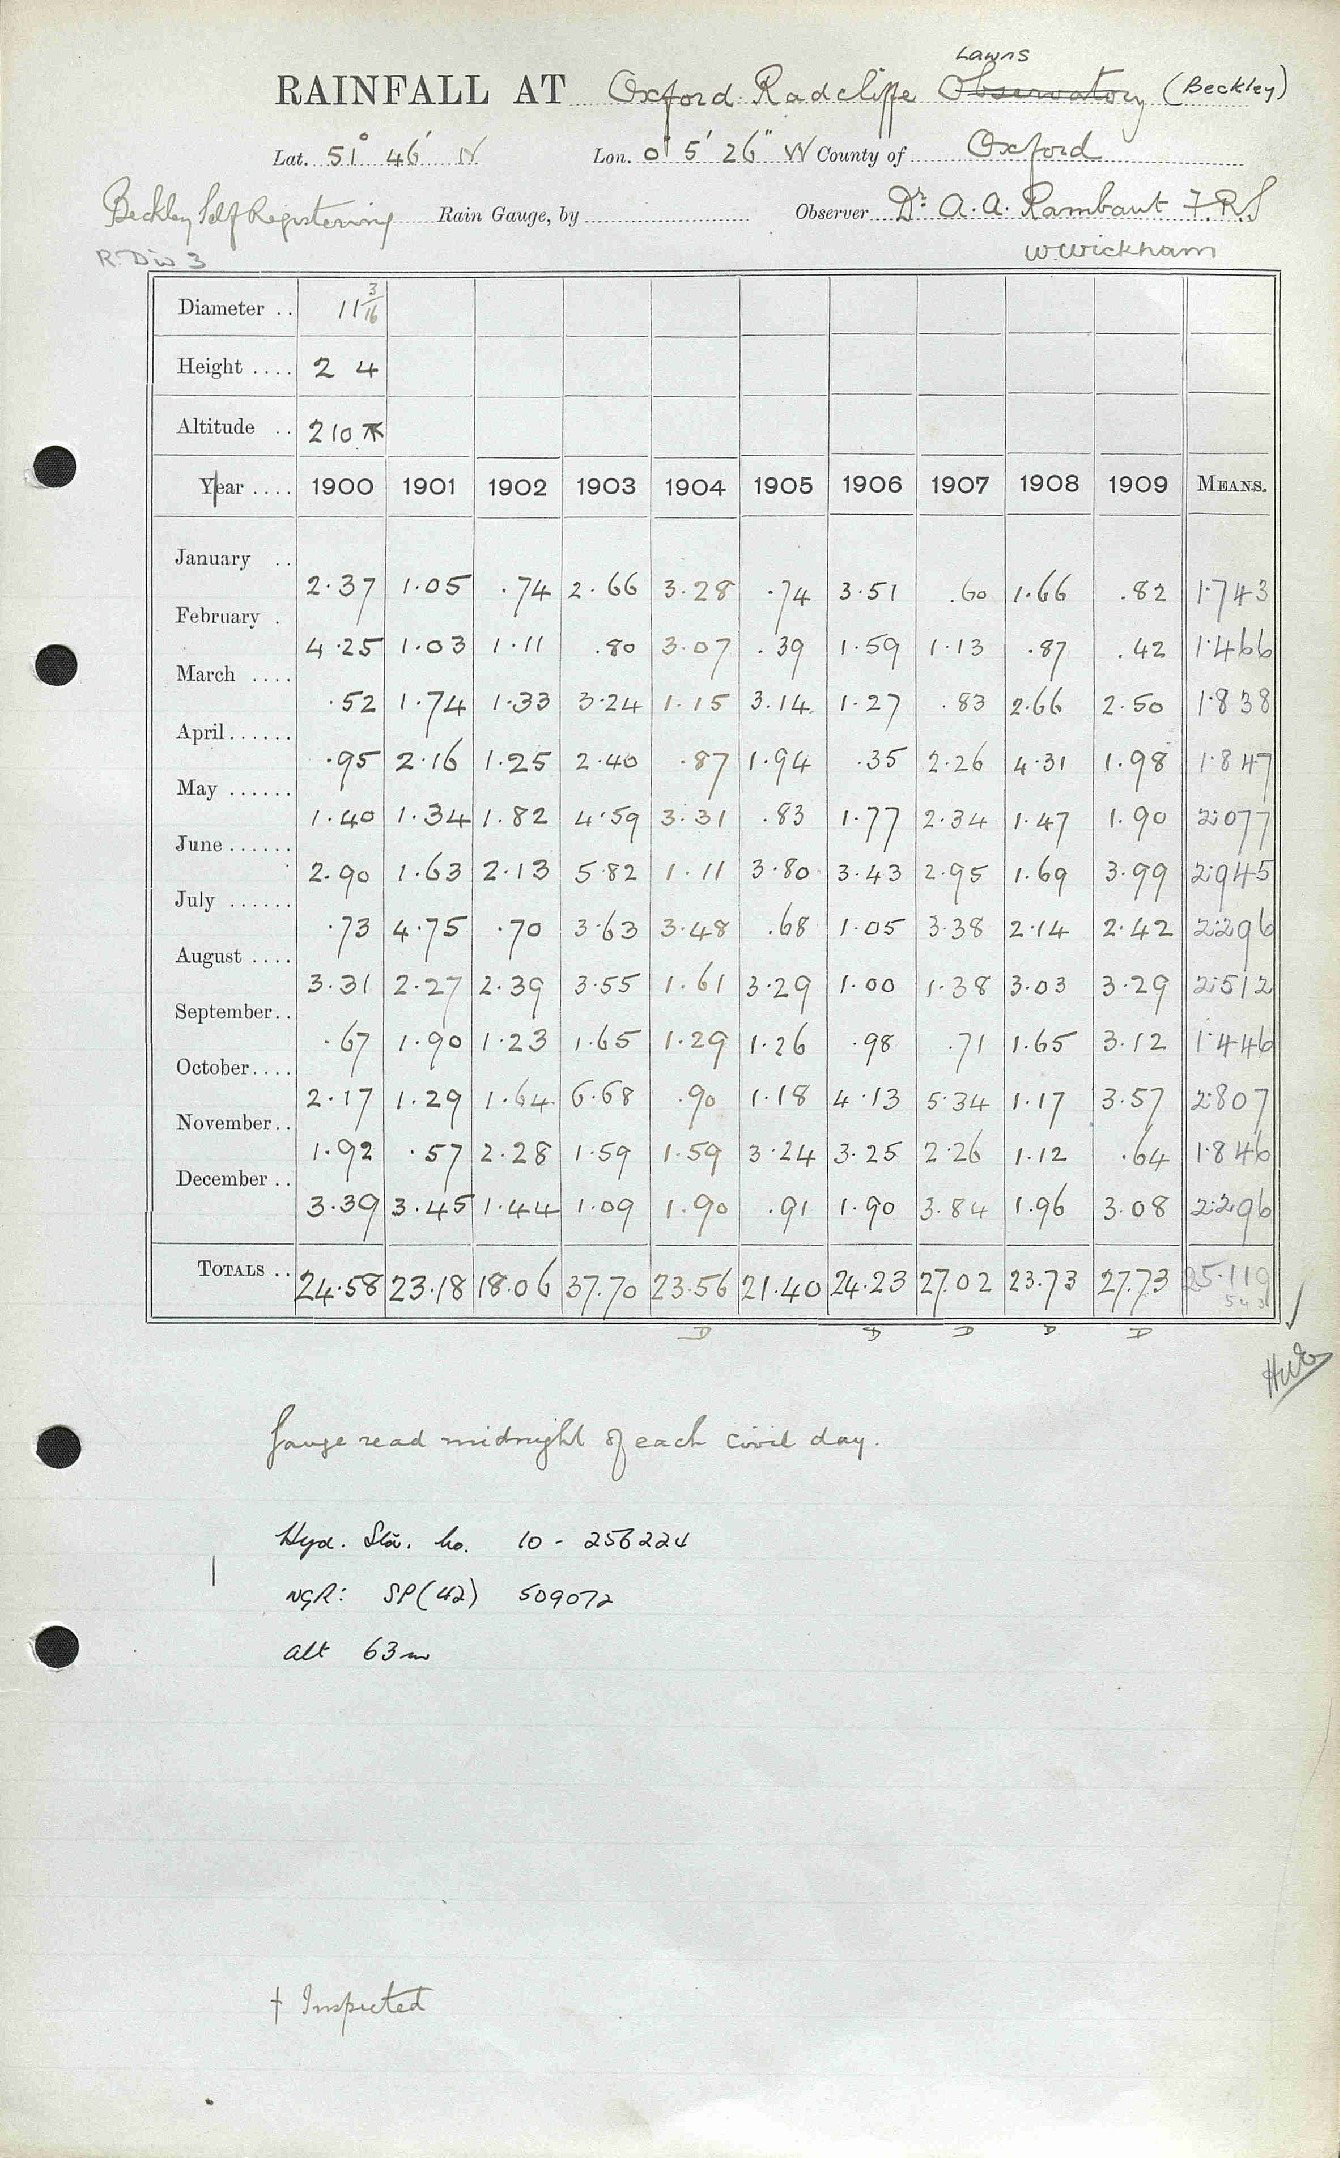 Lawns
RAINFALL AT Oxford Radcliffe Observatory (Beckley)
Lat. 51° 46' N Lon. 0° 5' 26" W County of Oxford
Beckley Self Registering Rain Gauge, by Observer Dr. A. A. Rambaut F.R.S
R. Div 3 W. Wickham
Diameter .. 11 3/16
Height .... 2 4
Altitude .. 210
Year .... 1900 1901 1902 1903 1904 1905 1906 1907 1908 1909 MEANS.
January .. 2.37 1.05 .74 2.66 3.28 .74 3.51 .60 1.66 .82 1.743
February . 4.25 1.03 1.11 .80 3.07 .39 1.59 1.13 .87 .42 1.466
March .... .52 1.74 1.33 3.24 1.15 3.14 1.27 .83 2.66 2.50 1.838
April...... .95 2.16 1.25 2.40 .87 1.94 .35 2.26 4.31 1.98 1.847
May ...... 1.40 1.34 1.82 4.59 3.31 .83 1.77 2.34 1.47 1.90 2.077
June...... 2.90 1.63 2.13 5.82 1.11 3.80 3.43 2.95 1.69 3.99 2.945
July ...... .73 4.75 .70 3.63 3.48 .68 1.05 3.38 2.14 2.42 2.296
August .... 3.31 2.27 2.39 3.55 1.61 3.29 1.00 1.38 3.03 3.29 2.512
September.. .67 1.90 1.23 1.65 1.29 1.26 .98 .71 1.65 3.12 1.446
October.... 2.17 1.29 1.64 6.68 .90 1.18 4.13 5.34 1.17 3.57 2.807
November.. 1.92 .57 2.28 1.59 1.59 3.24 3.25 2.26 1.12 .64 1.846
December .. 3.39 3.45 1.44 1.09 1.90 .91 1.90 3.84 1.96 3.08 2.296
TOTALS .. 24.58 23.18 18.06 37.70 23.56 21.40 24.23 27.02 23.73 27.73 25.119
D D D D D
Gauge read midnight of each civil day.
Hyd. Sta. no. 10 - 256224
NGR: SP(42) 509072
alt 63m
† Inspected